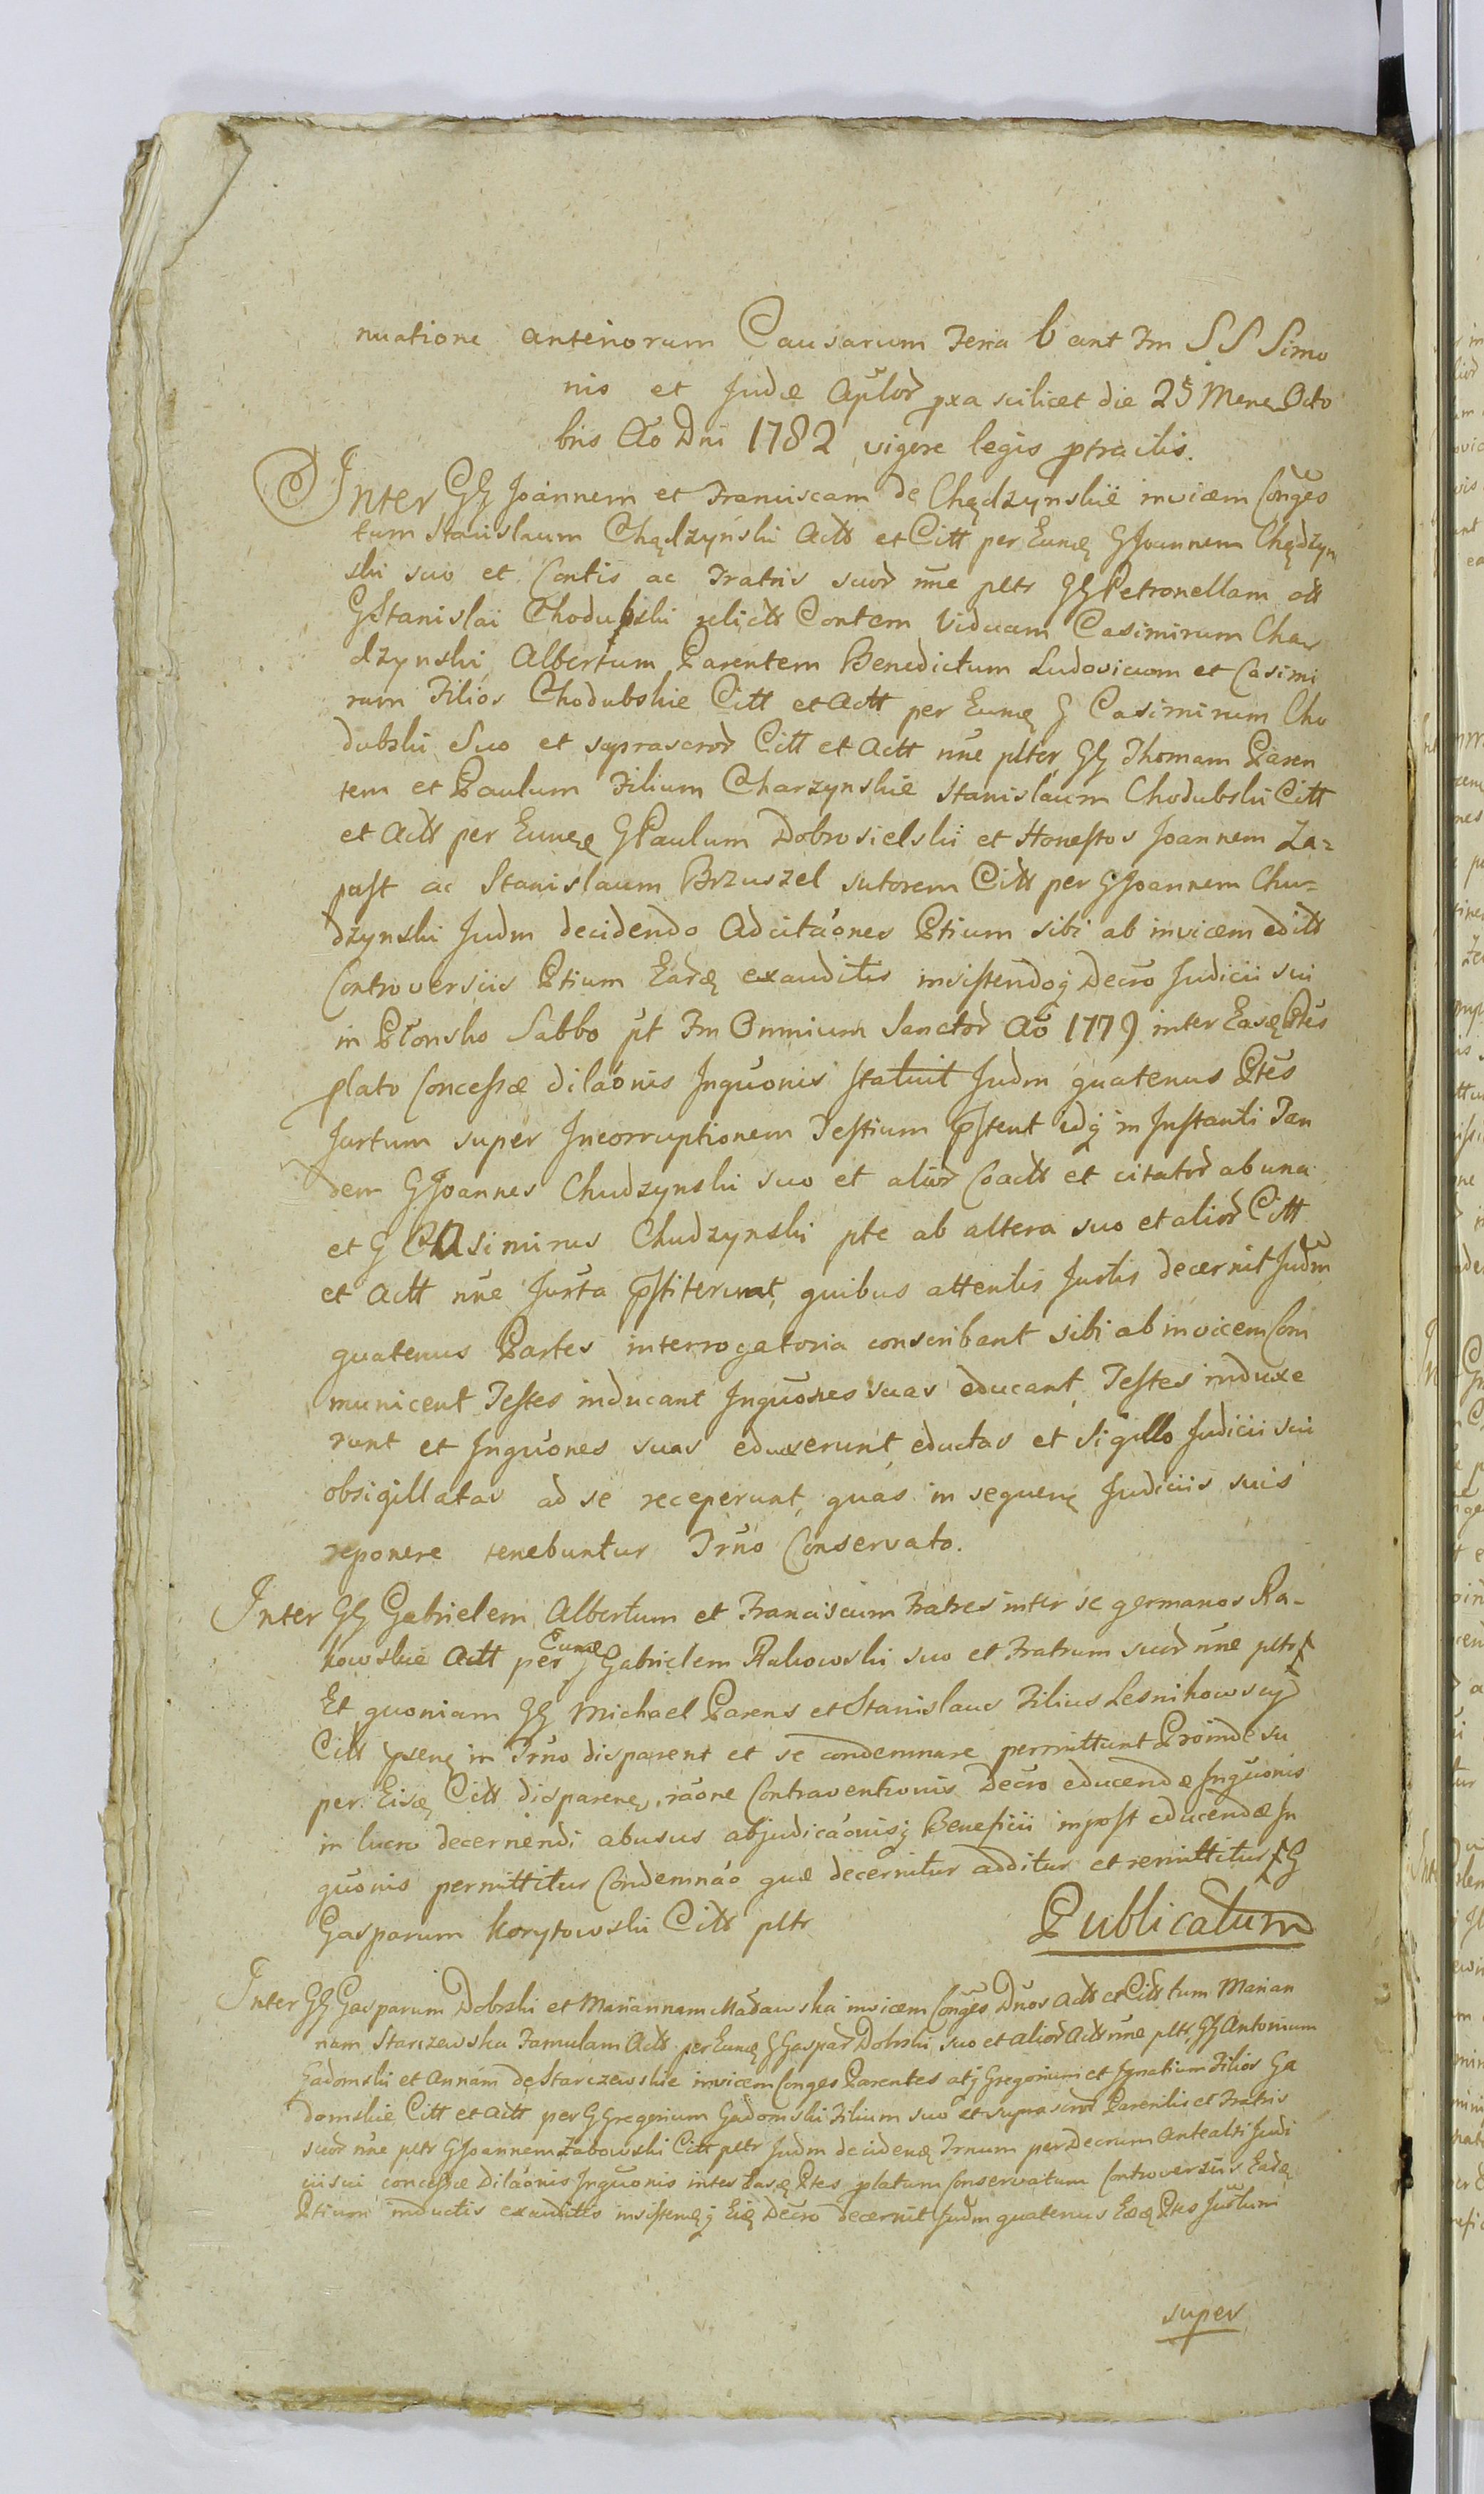 nuatione anteriorum Causarum Feria 6 ant Fm SS Simo
nis et Judæ Aplor pxa scilicet die 25 Mens Octo
bris Ao Dni 1782 vigore legis ptracitis.
Inter GG Joannem et Franciscam de Chędzynskie invicem Conges
tum Stanislaum Chędzyński Act et Citt per Eumę G Joannem Chędzyn
ski suo et Contis ac Fratris suor nne pltr GG Petronellam olt
G Stanislai Chodubski relict Contem Viduam Casimirum Chu
dzynski Albertum Parentem Benedictum Ludovicum et Casimi
rum Filios Chodubskie Citt et Actt per Eumę G Casimirum Cho
dubski Suo et suprascror Citt et Actt nne plter GG Thomam Paren
tem et Paulum Filium Charzynskie Stanislaum Chodubski Citt
et Actt per Eumę G Paulum Dobrosielski et Honestos Joannem Za=
past ac Stanislaum Brzuszel sutorem Citt per G Joannem Chu=
dzynski Judm decidendo Adcitaones Ptium sibi ab invicem editt
Controversiis Ptium Earę exauditis insistendoq Decro Judicii sui
in Płonsko Sabbo pt Fm Omnium Sanctor Ao 1779 inter Easę Ptes
plato Concessæ dilaonis Inquonis statuit Judm quatenus Ptes
Jurtum super Incorruptionem Testium pstent idq in Instanti Tan
dem G Joannes Chudzynski suo et alior Coactt et citator ab una
et G Casimirus Chudzynski pte ab altera suo et alior Citt
et Actt nne Jurta pstiterunt, quibus attentis Jurtis decernit Judm
quatenus Partes interrogatoria conscribant sibi ab invicem Com
municent Testes inducant Inquones suas educant, Testes induxe
runt et Inquones suas eduxerunt, eductas et Sigillo Judicii sui
obsigillatas ad se receperunt, quas in sequenę Judiciis suis
reponere tenebuntur Trno Conservato.
Inter GG Gabrielem Albertum et Franciscum Fratres inter se germanos Ra-
kowskie Actt per Eumę G Gabrielem Rakowski suo et Fratrum suor nne pltr
Et quoniam GG Michael Parens et Stanislaus Filius Lesnikowscy
Citt psenę in Trno disparent et se condemnare permittunt Proinde su
per Eisę Citt disparenę, raone Contraventionis Decro educendæ Inquonis
in lucro decernendi abusus abjudicaonisq Beneficii inpost educendæ In
quonis permittitur Condemnao quæ decernitur additur et remittitur G
Gasparum Korytowski Citt pltr
Publicatum
Inter GG Gasparum Dobski et Mariannam Madawska invicem Conges Dnos Actt et Citt tum Marian
nam Starczewska Famulam Actt per Eumę G Gaspar Dobski suo et alior Actt nne pltr, GG Antonium
Gadomski et Annam de Starczewskie invicem Conges Parentes atq Gregorium et Ignatium Filios Ga
domskie Citt et Actt per G Gregorium Gadomski Filium suo et suprascror Parentis et Fratris
suor nne pltr G Joannem Zabowski Citt pltr Judm decidenę Trnum per Decrum Antealti Judi
cii sui concessæ Dilaonis Inquonis inter Easę Ptes platum Conservatum Controversiis Earę
Ptium inductis exauditis insistenęq Eię Decro decernit Judm quatenus Eæę Ptes Jurtum
super